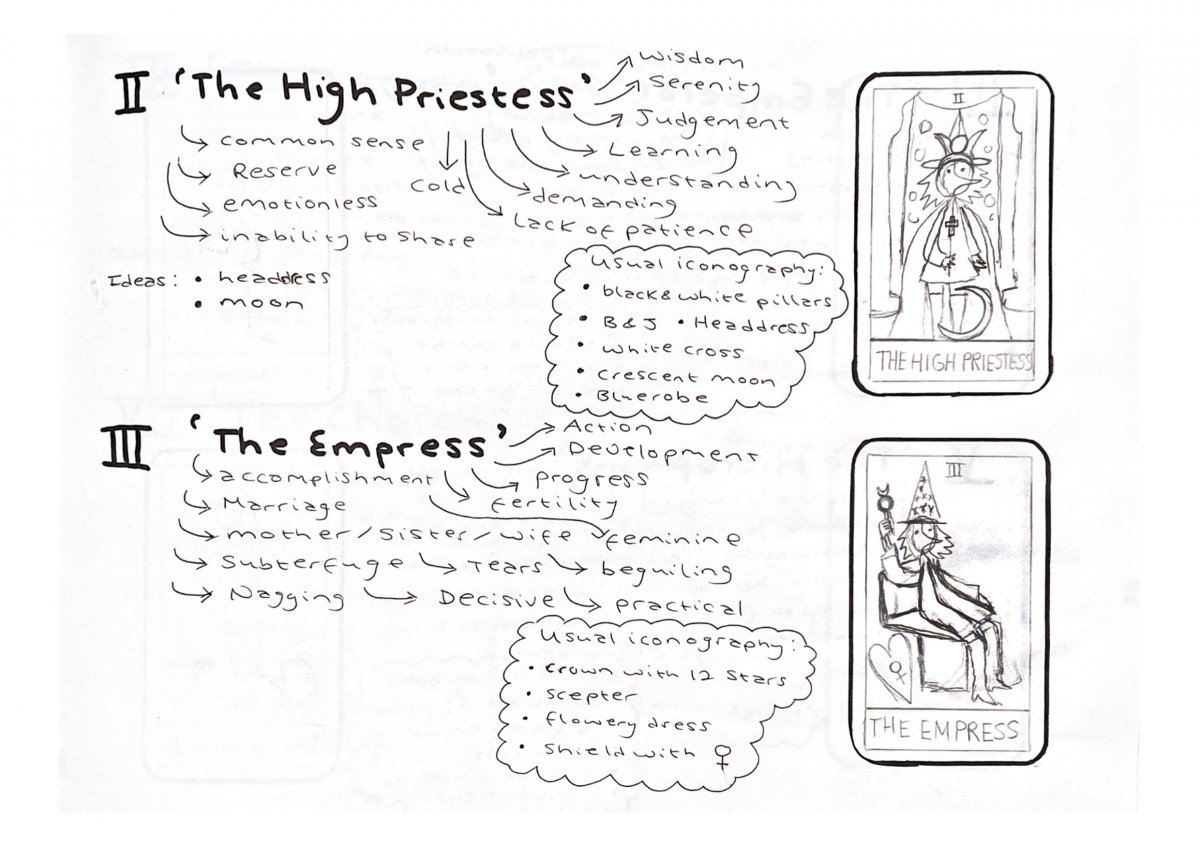 II 'The High Priestess'
→ Wisdom
→ Serenity
→ Judgement
→ Learning
→ understanding
→ demanding
→ Lack of patience
→ Cold
→ common sense
→ Reserve
→ emotionless
→ inability to share
Ideas: • headdress
• moon
Usual iconography:
• black & white pillars
• B & J • Headdress
• white cross
• crescent moon
• Bluerobe
II
THE HIGH PRIESTESS
III 'The Empress'
→ Action
→ Development
→ Progress
→ fertility
→ feminine
→ accomplishment
→ Marriage
→ mother / sister / wife
→ Subterfuge → Tears → beguiling
→ Nagging → Decisive → practical
Usual iconography:
• crown with 12 stars
• scepter
• flowery dress
• shield with ♀
III
♀
THE EMPRESS